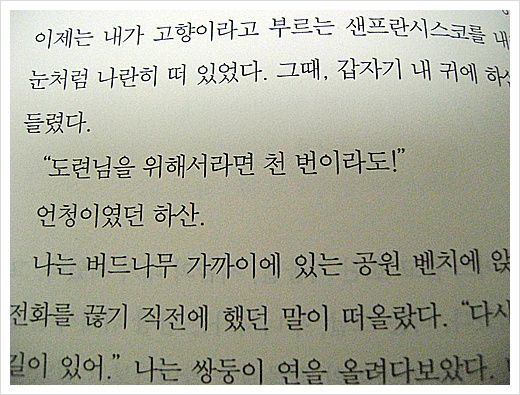 이제는 내가 고향이라고 부르는 샌프란시스코를
눈처럼 나란히 떠 있었다. 그때, 갑자기 내 귀에
들렸다.
“도련님을 위해서라면 천 번이라도!”
언청이였던 하산.
나는 버드나무 가까이에 있는 공원 벤치에
전화를 끊기 직전에 했던 말이 떠올랐다. “다시
길이 있어.” 나는 쌍둥이 연을 올려다보았다.